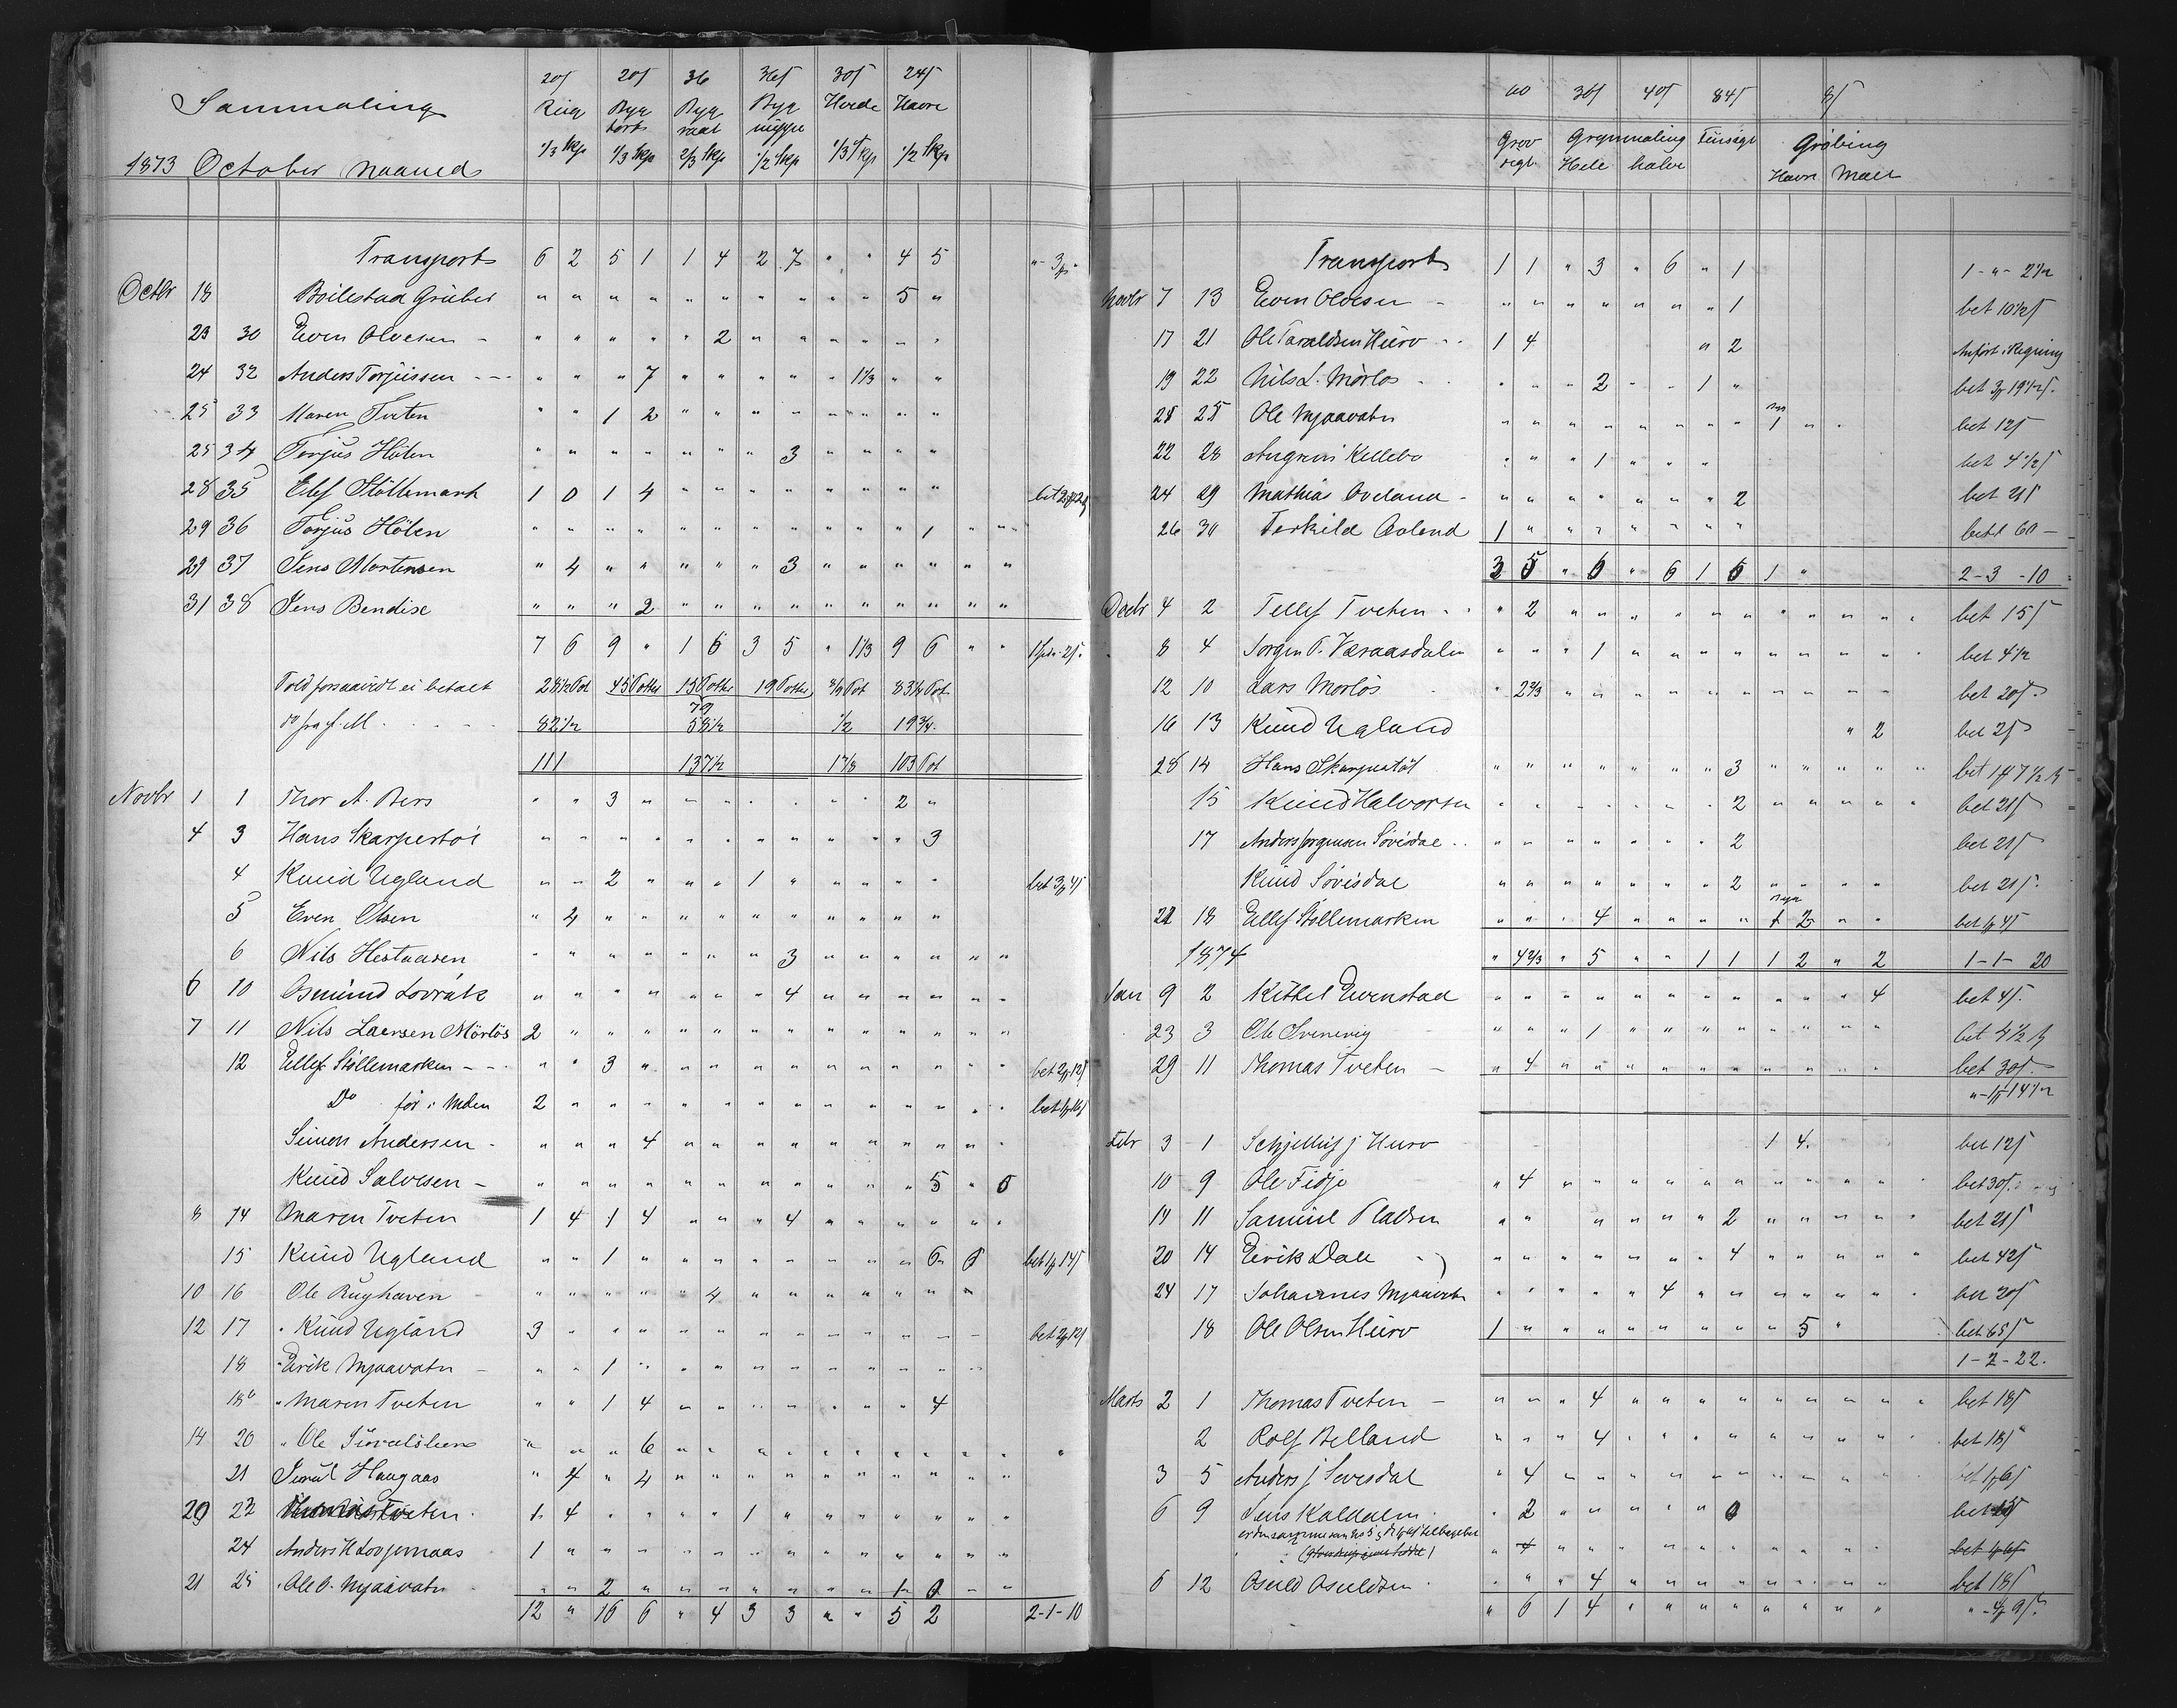 Sammaling
1873 October Maaned
20ſ 20ſ 36 36ſ 30ſ 24ſ
Rug Byg Byg Byg Hvede Havre
tort raat
1/3 Skp 1/3 Skp 2/3 Skp 1/2 Skp 1/3 Skp 1/2 Skp
Transport 6 2 5 1 1 4 2 7 " " 4 5 "-3
Octbr 18 Boilestad Gruber " " " " " " " " " " 5 "
23 30 Even Olvesen - " " " " " 2 " " " " " "
24 32 Anders Torjussen - - - " " " 7 " " " " " 1 1/3 " "
25 33 Maren Tveten " " 1 2 " " " " " " " "
25 34 Torjus Hölen " " " " " " " 3 " " " "
28 35 Elef Stöllemark 1 0 1 4 " " " " " " " " bet
29 36 Torjus Hölen " " " " " " " " " " " 1 " "
29 37 Jens Mortensen " 4 " " " " " 3 " " " " " "
31 38 Jens Bendixe " " " 2 " " " " " " " " " "
7 6 9 " 1 6 3 5 " 1 1/3 9 6 " "
Told forsaavidt ei betalt 28 1/2 Pot 45 Potter 15 Potter 19 Potter Pot 83 1/4 Pot
79
do fra f. M. 82 1/2 58 1/2 1/2 19 3/4
111 137 1/2 103 Pot
Novbr 1 1 Thor A. Bers " " 3 " " " " " " " 2 "
4 3 Hans Skarpestöl " " " " " " " " " " " 3
4 Knud Ugland " " 2 " " " 1 " " " " " bet 3 4ſ
5 Even Olsen " 4 " " " " " " " " " "
6 Nils Hestaasen " " " " " " " 3 " " " " " "
6 10 Osmund Lovrak " " " " " " " 4 " " " " " "
7 11 Nils Laersen Mörlös 2 " " " " " " " " " " " " "
12 Ellef Stöllemarken - - " " 3 " " " " " " " " " " " bet 2 12ſ
Do för i Mden 2 " " " " " " " " " " " " " bet
Simon Andersen - " " " 4 " " " " " " " " " "
Knud Salvesen - " " " " " " " " " " " 5 " 6
8 14 Maren Tveten 1 4 1 4 " " " 4 " " " " " "
15 Knud Ugland " " 1 " " " " " " " " 6 bet 1 14ſ
10 16 Ole Rughaven " " " " " 4 " " " " " " "
12 17 " Knud Ugland 3 " " " " " " " " " " " " bet 2 12ſ
18 " Eirik Mjaavatn - " " 1 " " " " " " " " " "
18 " Maren Tveten " " 1 4 " " " " " " " 4
14 20 " Ole " " " 6 " " " " " " " " " " "
21 Haugaas " 4 " 4 " " " " " " " " " "
20 22 Tveten 1 4 " " " " 1 " " " " " " "
24 Anders H 1 " " " " " " " " " " " " "
21 25 " Ole O. Mjaavatn " " 2 " " " " " " " 1 0 " "
12 " 16 6 " 4 3 3 " " 5 2 2-1-10
60 36ſ 40ſ 84ſ 8ſ
Grov Grynmaling Finsigt Gröbing
sigt Hele halve Havre Malt
Transport 1 1 " 3 " 6 " 1 1-"-2 1/2
Novbr 7 13 Even Olvesen - " " " " " " " 1 bet 10 1/2ſ
17 21 Ole Taraldsen Hurv - - 1 4 " 2 Anfört i Regning
19 22 Nils L. Mörlos - " " " 2 " " 1 " bet 3 19 1/2ſ
28 25 Ole Mjaavatn " " " " " " " " 1 " " bet 12ſ
22 28 Kellebo " " " 1 " " " bet 4 1/2ſ
24 29 Mathias Oveland - " " " " " " " 2 bet 21ſ
26 30 Terkild Aaland 1 " " " " " " " betl 60 -
3 5 " 6 " 6 1 6 1 " 2-3-10
Decbr 4 2 Tellef Tveten - " 2 " " " " " " " " " " " bet 15ſ
8 4 Jorgen P. Væraasdalen " " " 1 " " " " " " " " " bet 4 1/2
12 10 Lars Morlös " 2 2/3 " " " " " " " " " " bet 20ſ
16 13 Knud Ugland " 2 bet 2ſ
28 14 Hans Skarpestöl " " " " " " " 3 " " " " " bet 1 7 1/2 ſ
15 Knud Halvorsen " " " " " " " 2 " " " " " bet 21ſ
17 Anders Jorgensen Sövisdal - - " " " " " " " 2 bet 21ſ
Knud Sovisdal " " " " " " " 2 " " " " bet 21ſ
21 18 Ellef Stöllemarken " " " 4 " " " " 1 2 " " bet 4ſ
1874 " 4 2/3 " 5 " " 1 1 1 2 " 2 1-1-20
Jan 9 2 Kittel Evenstad " " " " " " " " " " " 4 bet 4ſ.
23 3 Ole Svenevig " " " 1 " " " " " " " " bet 4 1/2 ſ
29 11 Thomas Tveten - " 4 " " " " " " " " " " bet 30ſ
"-1-14 1/2
Febr 3 1 j Hurv 1 4 bet 12ſ
10 9 Ole Fidje " 4 " " " " " " " " " " " bet 30ſ
14 11 Samuel Pladsen " " " " " " 2 " " " " " bet 21ſ
20 14 Eirik Dale " " " " " " " 4 " " " " " bet 42ſ
24 17 Johannes Mjaavatn " " " " " 4 " " " " " " " bet 20ſ
18 Ole Olsen Hurv 1 " " " " " " " " 5 " bet 65ſ
1-2-22.
Marts 2 1 Thomas Tveten - " " " 4 " " " " " " " " " bet 18ſ
2 Rolf Belland " " " 4 " " " " " " " " " bet 18ſ
3 5 Anders j Sovesdal " 4 " " " " " " " " " " bet 1 6ſ
6 9 Jens Kaldalen " 2 " " " " " 0 bet
" 4 " " " " " " " " " " bet
6 12 Osuld Osuldsen " " " 4 " " " " " " " " bet 18ſ
" 6 1 4 " " " " " " " " "-4 9ſ